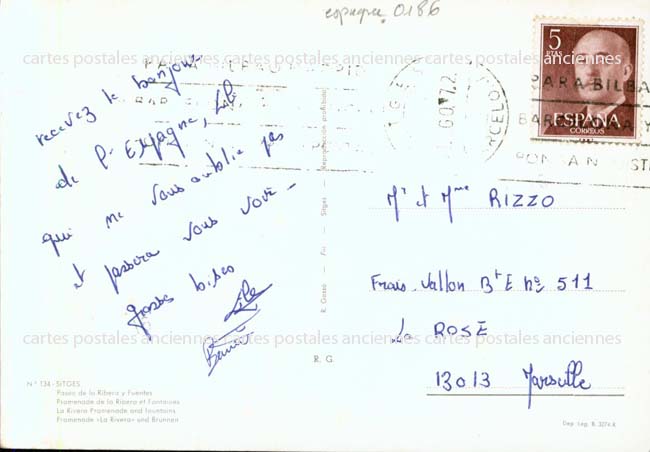 espagne 0186
cartes postales anciennes cartes postales anciennes
5
PTAS
ESPAÑA
CORREOS
PARA BILBA
BAR
PON
recevez le bonjour
de l' Espagne, Lili
qui ne vous oublie pas
et passera vous voir
grosse bises
Lili
Mr et Mme RIZZO
Frais-Vallon Bt E no 511
La ROSE
13013 Marseille
cartes postales anciennes cartes postales anciennes
cartes postales anciennes cartes postales anciennes
R. Gassó - Fot - Sitges - Reproducción prohibida
R. G.
N° 134 - SITGES
Paseo de la Ribera y Fuentes
Promenade de la Ribera et Fontaines
La Rivera Promenade and fountains
Promenade «La Rivera» und Brunnen
Dep. Leg. B. 3274-X